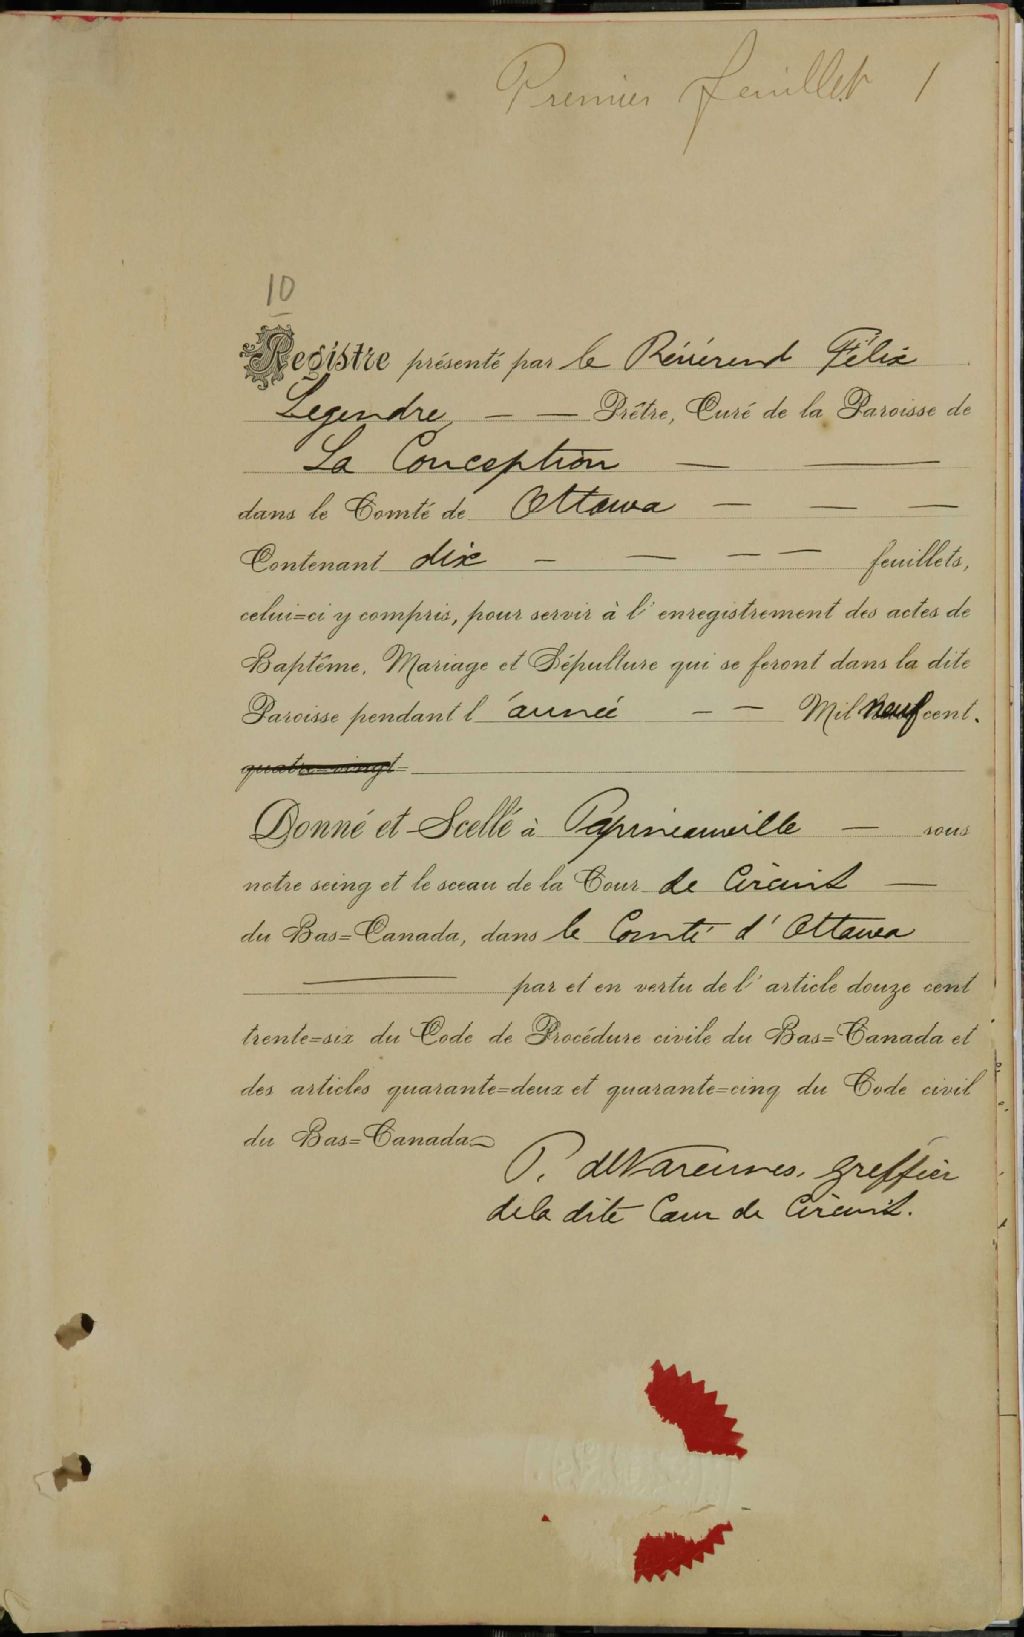 Premier feuillet 1
10
Registre présenté par le Révérend Félix
Legendre, — — Prêtre, Curé de la Paroisse de
La Conception — —
dans le Comté de Ottawa — — —
Contenant dix — — — — feuillets,
celui=ci y compris, pour servir à l'enregistrement des actes de
Baptême, Mariage et Sépulture qui se feront dans la dite
Paroisse pendant l'année — — Mil neuf cent.
quatre=vingt=
Donné et Scellé à Papineauville — sous
notre seing et le sceau de la Cour de Circuit —
du Bas=Canada, dans le Comté d'Ottawa
— par et en vertu de l'article douze cent
trente=six du Code de Procédure civile du Bas=Canada et
des articles quarante=deux et quarante=cinq du Code civil
du Bas=Canada
P. deVarennes, greffier
de la dite Cour de Circuit.